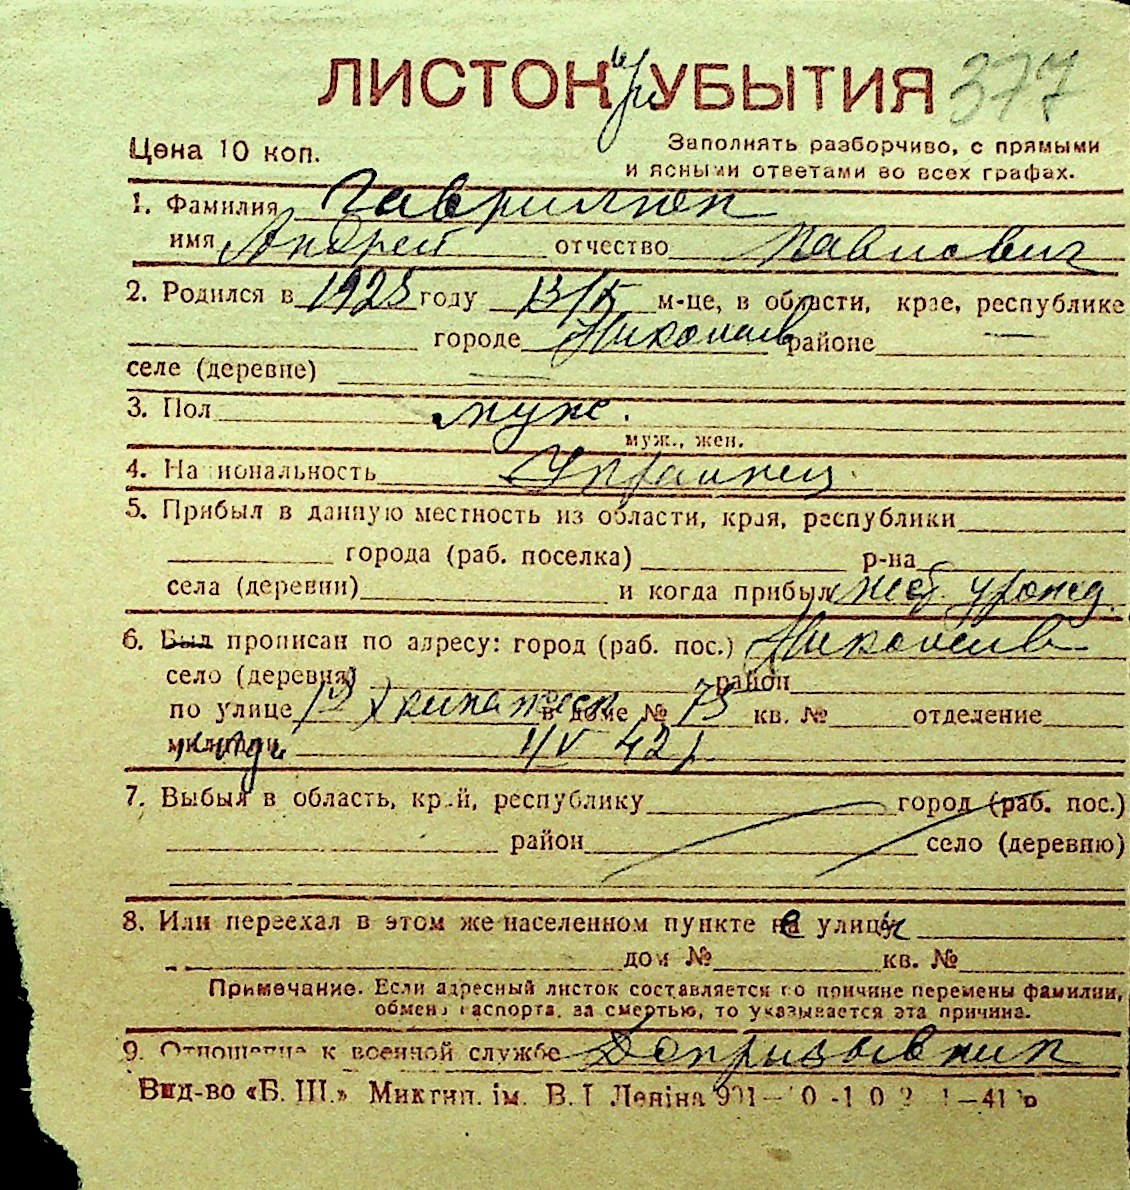 ЛИСТОК при УБЫТИЯ 377
Цена 10 коп.
Заполнять разборчиво, с прямыми
и ясными ответами во всех графах.
1. Фамилия Гаврилюк
имя Андрей отчество Павлович
2. Родился в 1923 году 13/IX м-це, в области, крае, республике
городе Николаев районе —
селе (деревне) —
3. Пол муж.
муж., жен.
4. Национальность Украинец.
5. Прибыл в данную местность из области, края, республики
города (раб. поселка) р-на
села (деревни) и когда прибыл мест. урожд.
6. Был прописан по адресу: город (раб. пос.) Николаев
село (деревня) район
по улице в доме № 75 кв. № отделение
милиции 1/IV 42 г.
7. Выбыл в область, край, республику город (раб. пос.)
район село (деревню)
8. Или переехал в этом же населенном пункте с улицы
дом № кв. №
Примечание. Если адресный листок составляется по причине перемены фамилии,
обмена паспорта, за смертью, то указывается эта причина.
9. Отношение к военной службе Допризывник
Вид-во «Б. Ш.» Микгип. ім. В. І Леніна